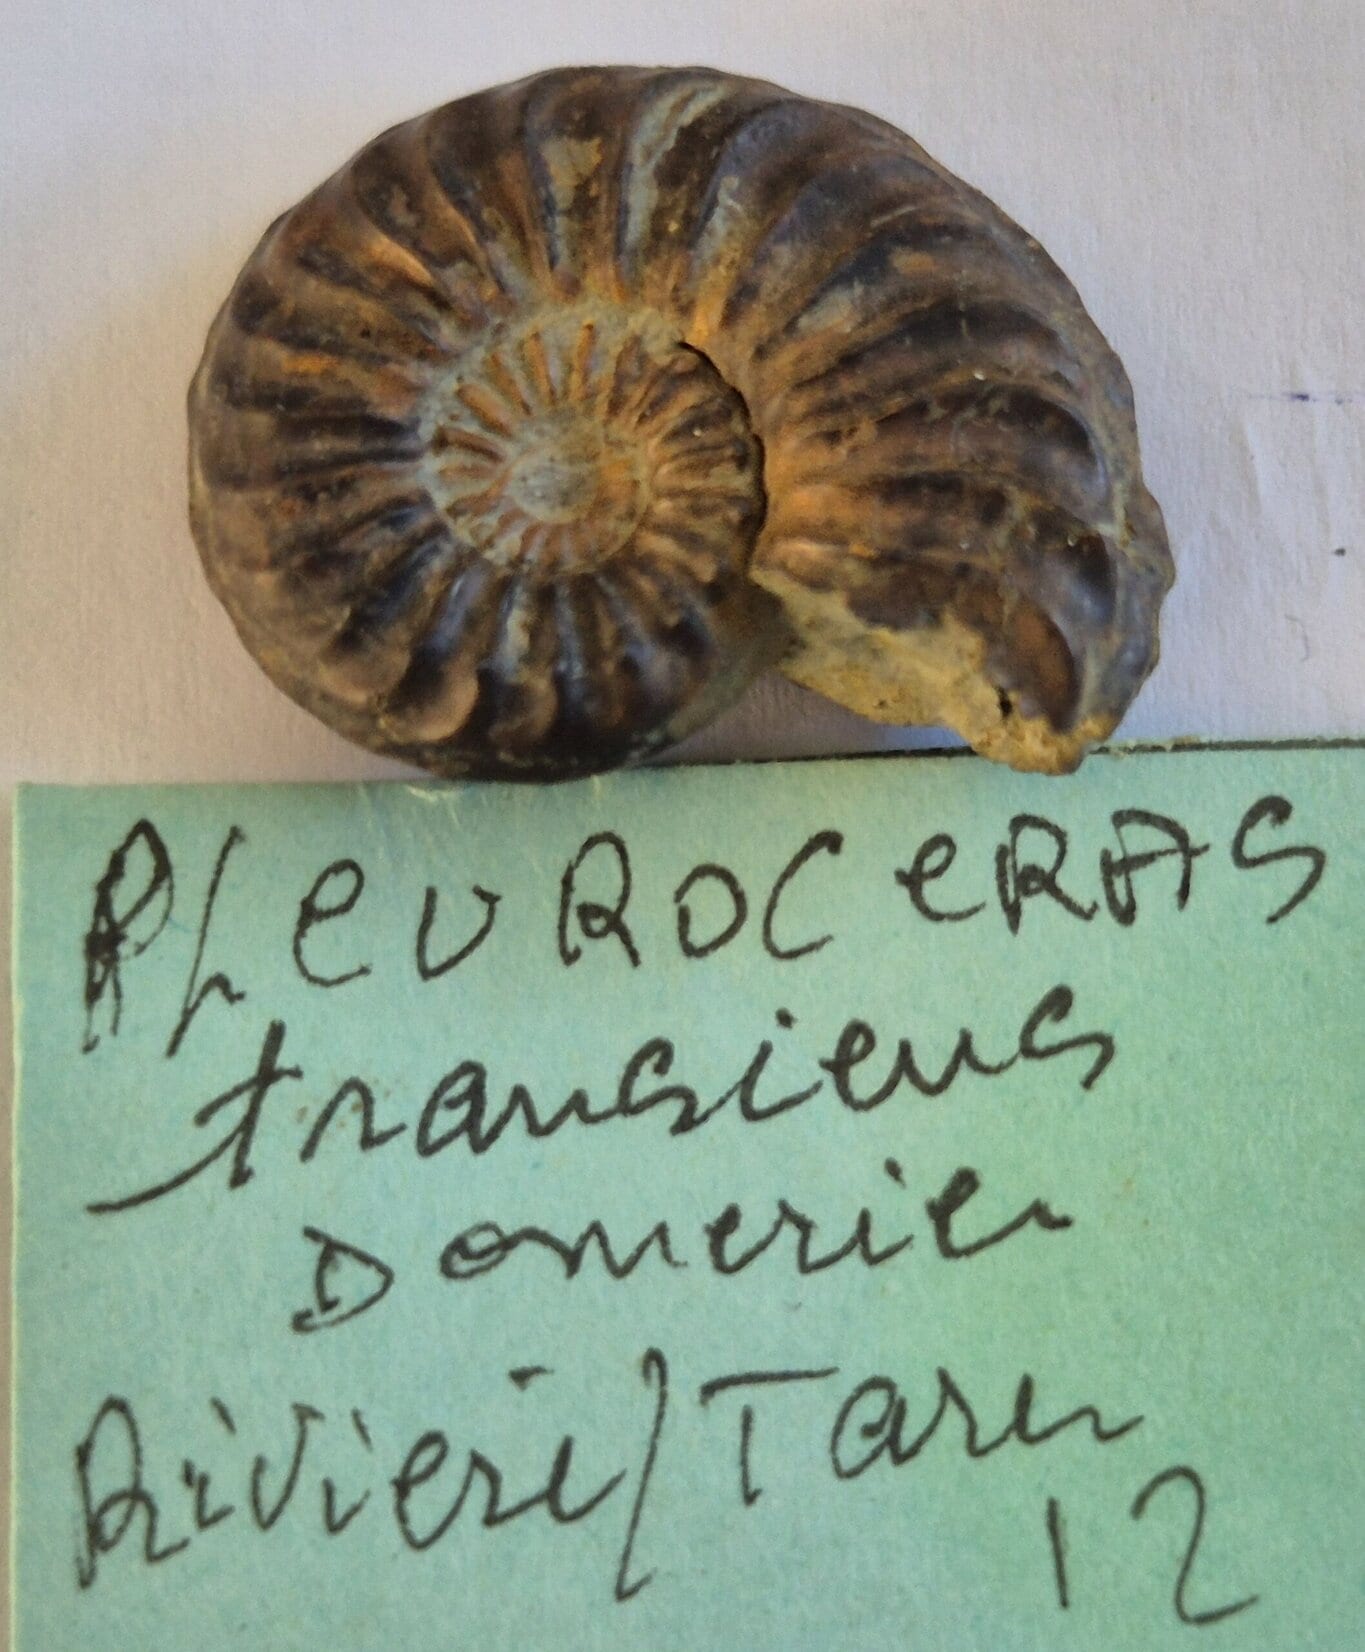 PLeUROCeRAS
transiens
Domerien
Rivière/Tarn
12